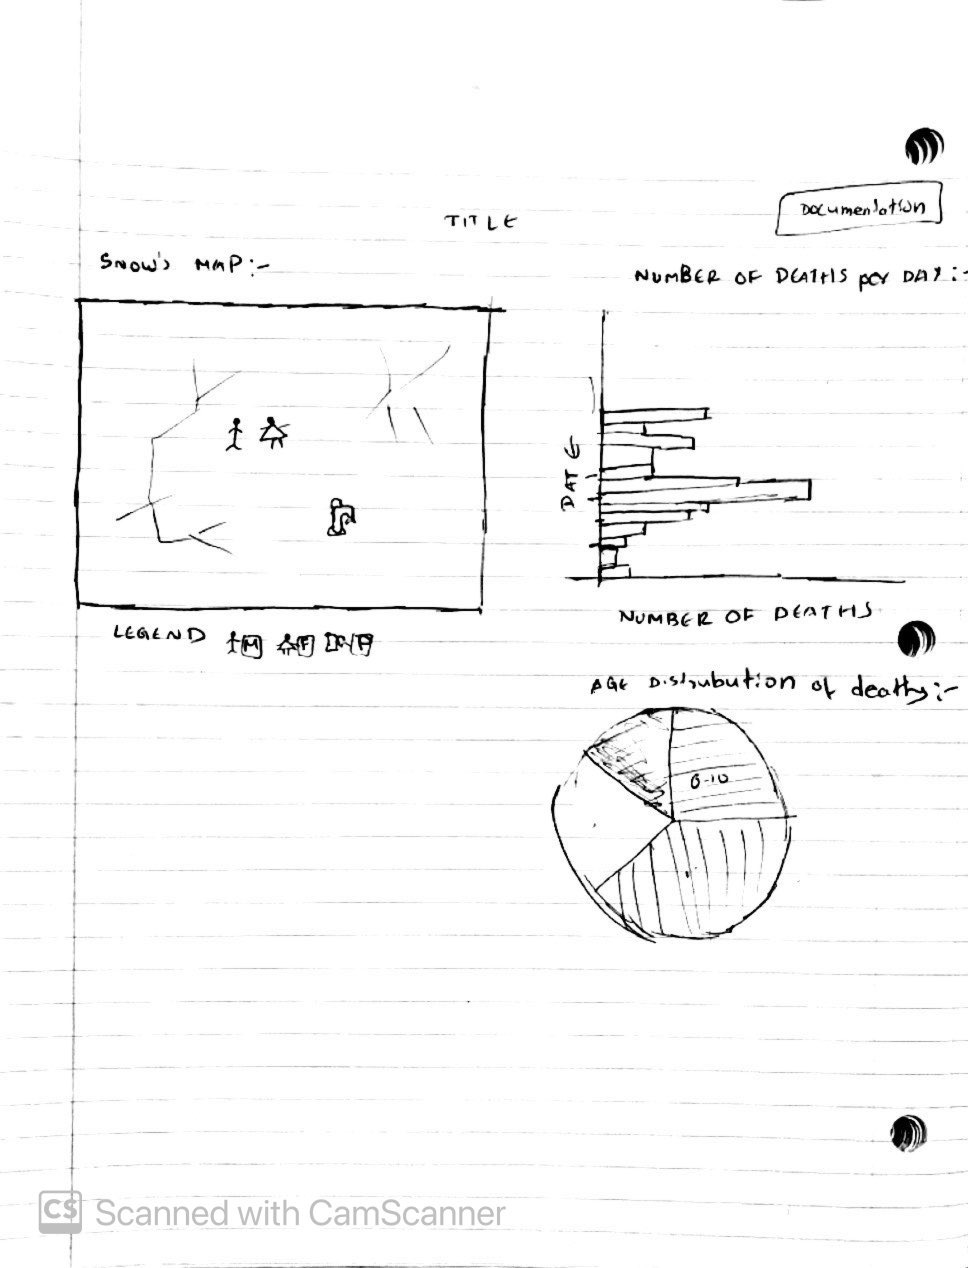 TITLE
DOCUMENTATION
SNOW'S MAP:-
NUMBER OF DEATHS per DAY:-
DATE
NUMBER OF DEATHS
LEGEND M F P
AGE Distribution of deaths:-
0-10
CS Scanned with CamScanner